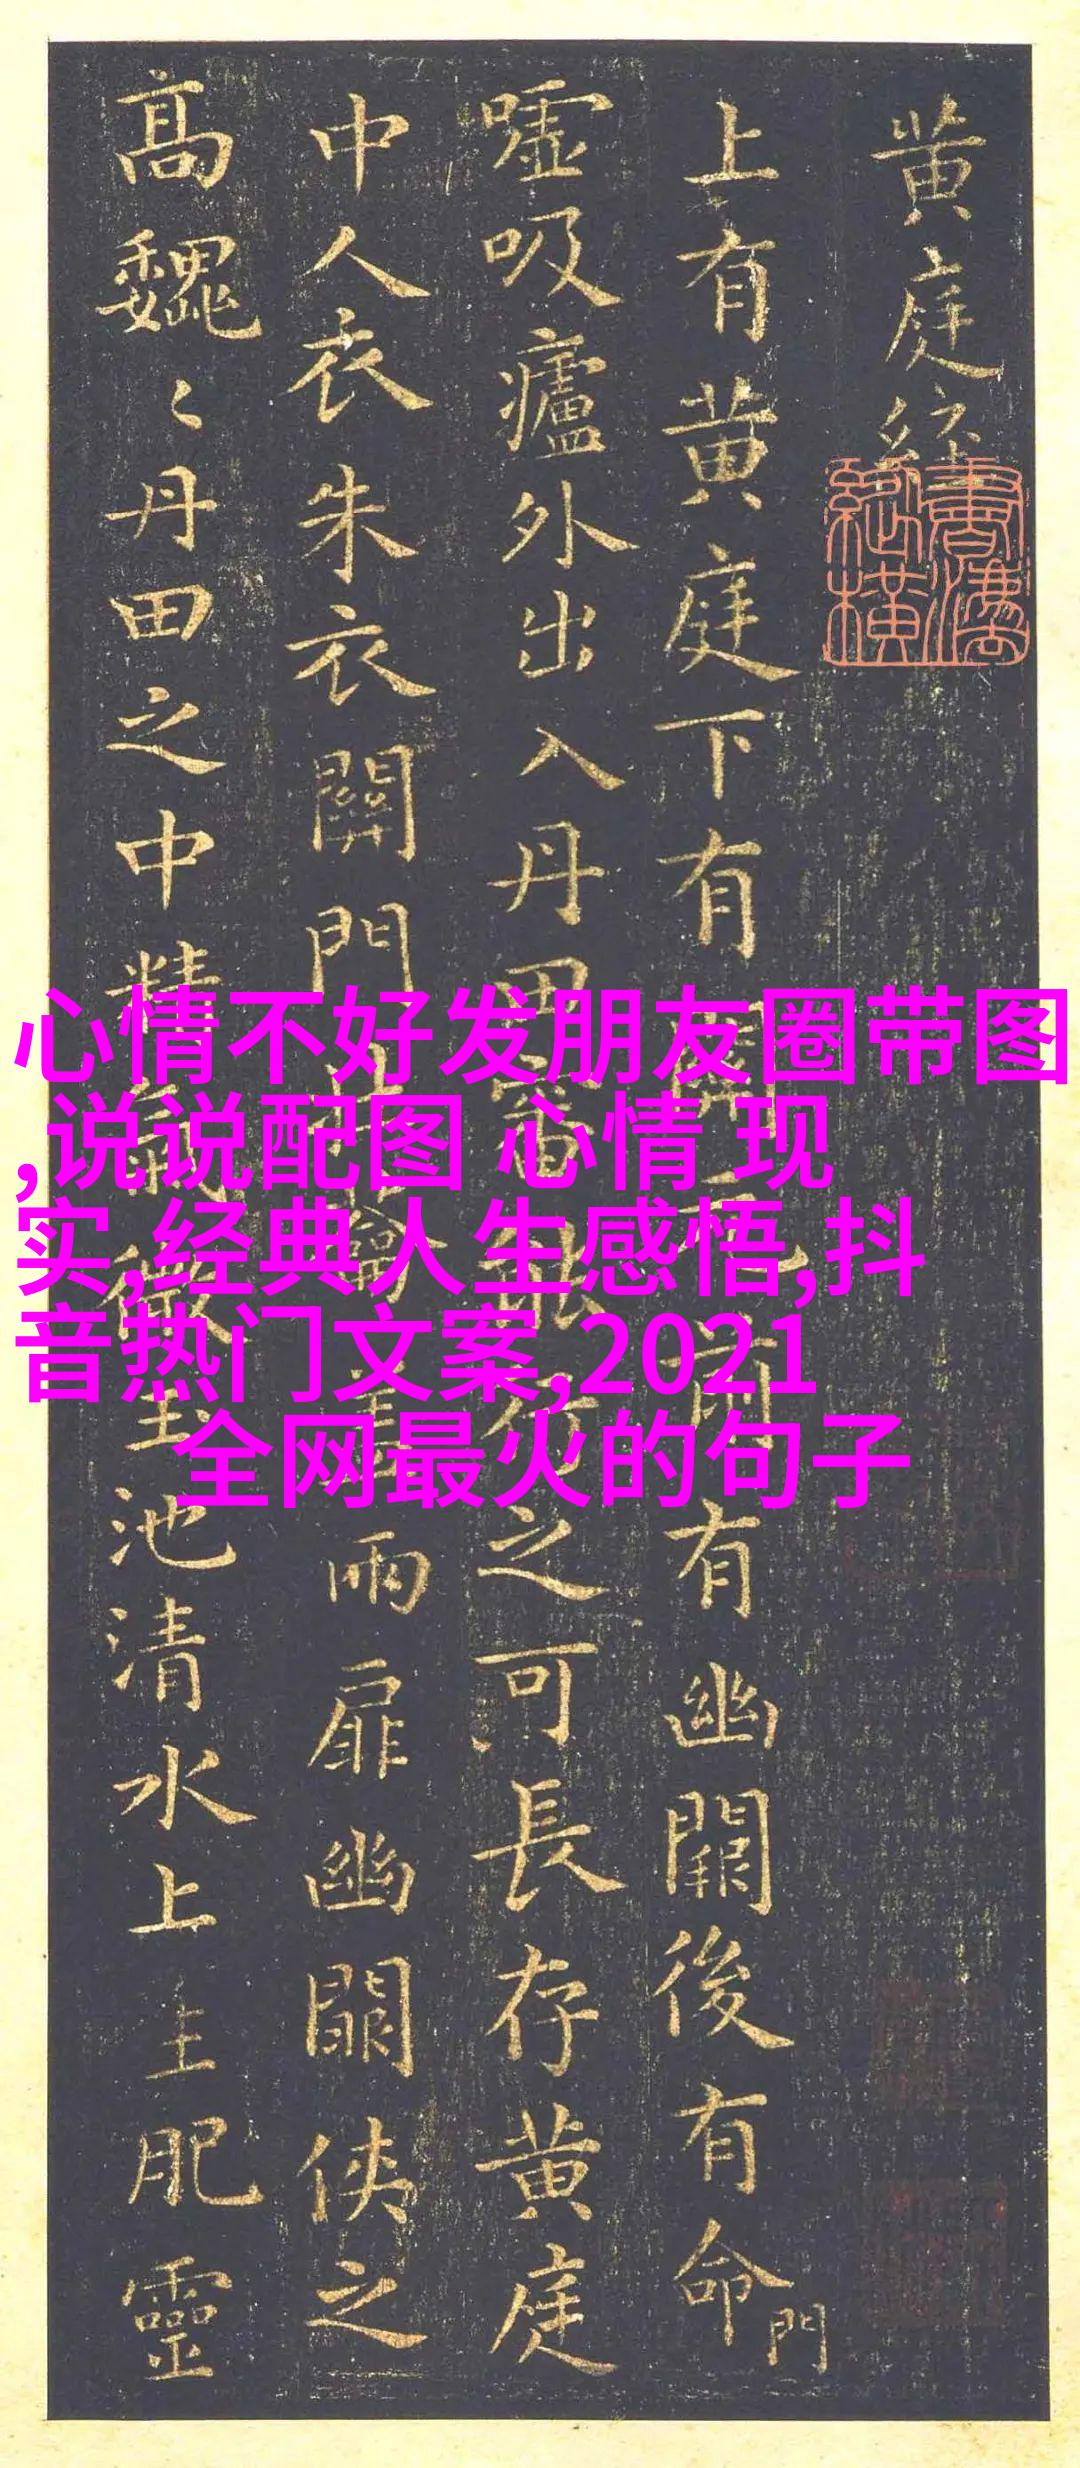 黄庭經
上有黄庭下有關元前有幽闕後有命門
嘘吸廬外出入丹田審能行之可長存黄庭
中人衣朱衣關門壯籥蓋兩扉幽闕俠之
高巍〻丹田之中精氣微玉池清水上生肥靈
心情不好发朋友圈带图
,说说配图 心情 现
实,经典人生感悟,抖
音热门文案,2021
全网最火的句子